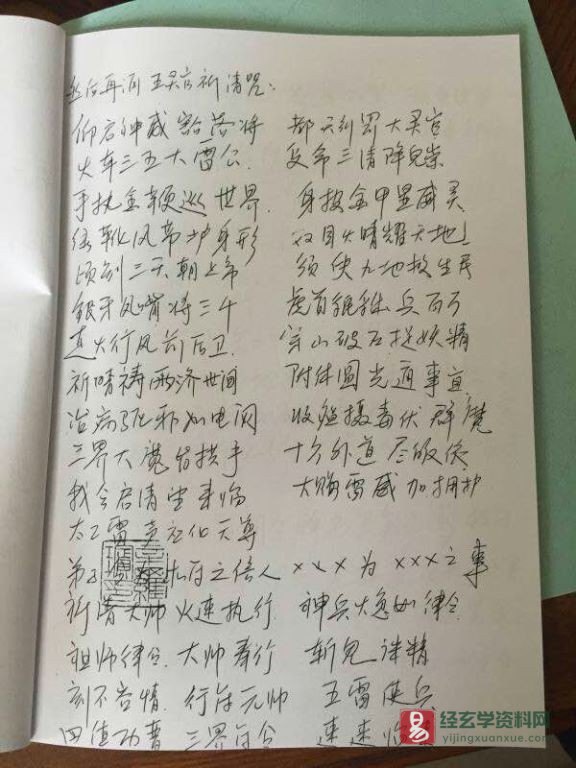 然后再诵 王灵官祈请咒:
仰启神威豁落将 都天纠罚大灵官
火车三五大雷公 受命三清降鬼祟
手执金鞭巡世界 身披金甲呈威灵
绿靴风带护身形 双目火睛耀天地
顷刻三天朝上帝 须臾九地救生民
银牙凤嘴将三千 虎首貔貅兵百万
走火行风前后卫 穿山破石捉妖精
祈晴祷雨济世间 附体圆光通事宜
治病驱邪如电闪 收瘟摄毒伏群魔
三界大魔皆拱手 十方外道尽皈依
我今启请望来临 大赐雷威加拥护
太乙雷声应化天尊
第 之信人 XXX 为 XXX 之事
祈请大帅 火速执行 神兵火急如律令
祖师律令 大帅奉行 斩鬼诛精
刻不容情 行符元帅 五雷使兵
四值功曹 三界符合 速速
易 经玄学资料网
yijingxuanxue.com